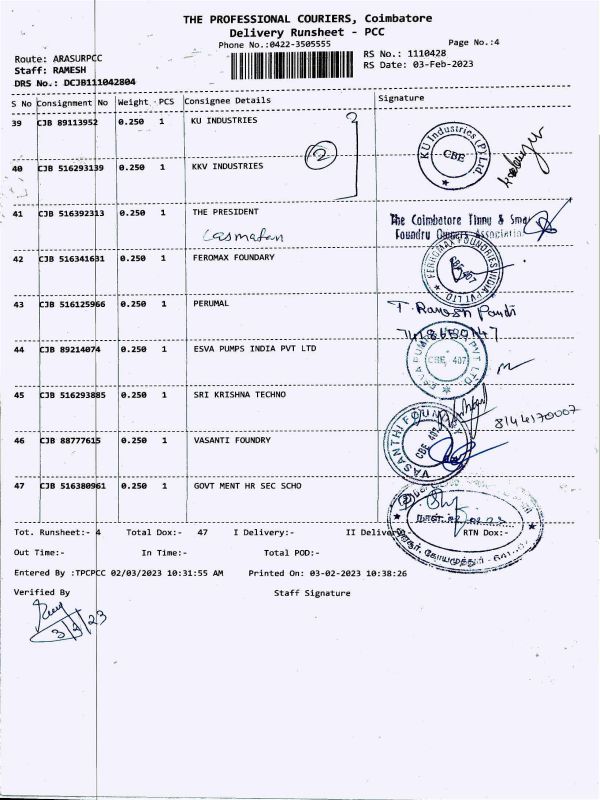 THE PROFESSIONAL COURIERS, Coimbatore
Delivery Runsheet - PCC
Phone No.:0422-3505555
Page No.:4
Route: ARASURPCC
RS No.: 1110428
Staff: RAMESH
RS Date: 03-Feb-2023
DRS No.: DCJB111042804
S No Consignment No Weight PCS Consignee Details Signature
39 CJB 89113952 0.250 1 KU INDUSTRIES
KU Industries (P) Ltd. CBE
2
40 CJB 516293139 0.250 1 KKV INDUSTRIES
41 CJB 516392313 0.250 1 THE PRESIDENT
The Coimbatore Tinny & Sma
Foundru Owners Association
42 CJB 516341631 0.250 1 FEROMAX FOUNDARY
43 CJB 516125966 0.250 1 PERUMAL
T. Ramesh Pandi
44 CJB 89214074 0.250 1 ESVA PUMPS INDIA PVT LTD
CBE, 407
45 CJB 516293885 0.250 1 SRI KRISHNA TECHNO
8144170007
46 CJB 88777615 0.250 1 VASANTI FOUNDRY
VASANTHI FOUNDRY CBE 407
47 CJB 516380961 0.250 1 GOVT MENT HR SEC SCHO
Tot. Runsheet:- 4 Total Dox:- 47 I Delivery:- II Delivery:- RTN Dox:-
Out Time:- In Time:- Total POD:-
Entered By :TPCPCC 02/03/2023 10:31:55 AM Printed On: 03-02-2023 10:38:26
Verified By Staff Signature
3/2/23